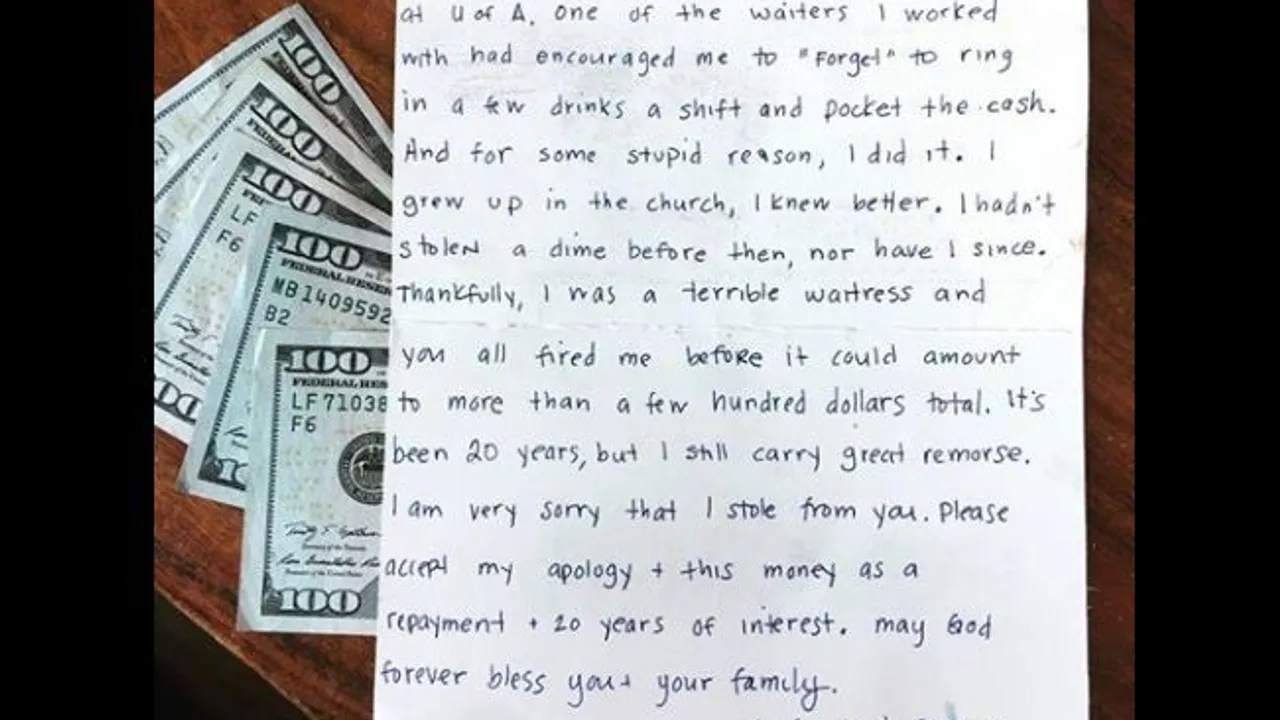 at U of A. One of the waiters I worked
with had encouraged me to "Forget" to ring
in a few drinks a shift and pocket the cash.
And for some stupid reason, I did it. I
grew up in the church, I knew better. I hadn't
stolen a dime before then, nor have I since.
Thankfully, I was a terrible waitress and
you all fired me before it could amount
to more than a few hundred dollars total. It's
been 20 years, but I still carry great remorse.
I am very sorry that I stole from you. Please
accept my apology + this money as a
repayment + 20 years of interest. may God
forever bless you + your family.
100
100
100
LF
F6
100
FEDERAL RESER
MB1409592
B2
100
FEDERAL RES
LF71038
F6
100